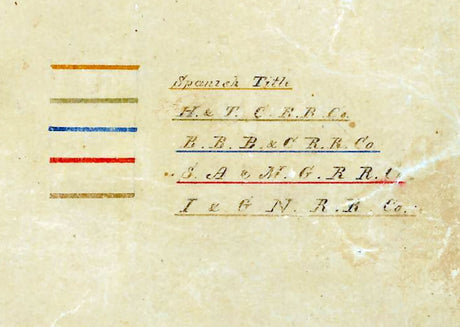 Spanish Title
H. & T. C. R. R. Co.
B. B. B. & C R. R. Co
S. A & M. G. R R. C
I & G N. R. R. Co.